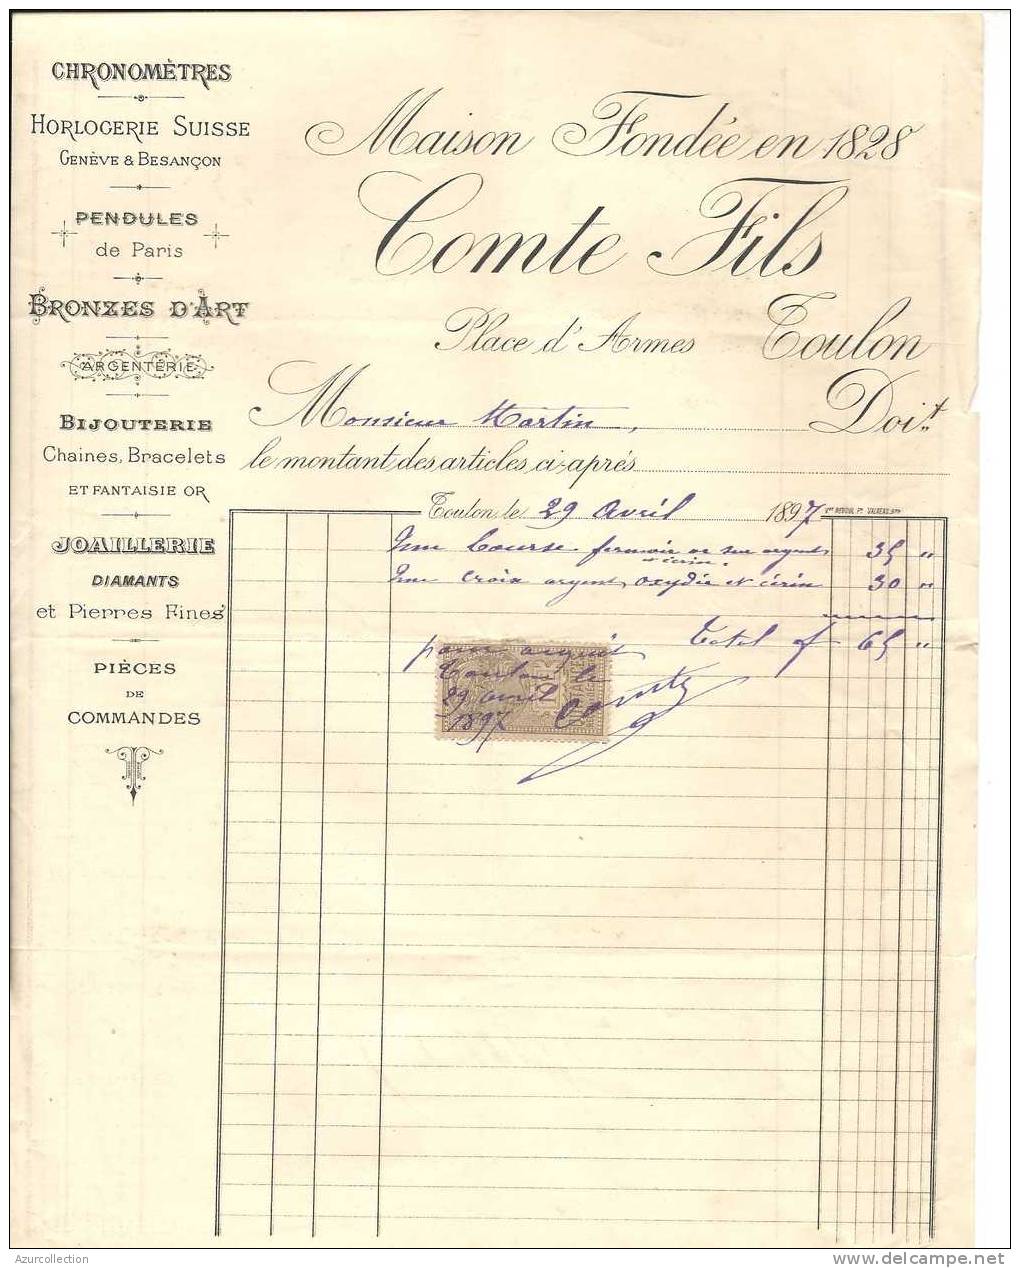 CHRONOMÈTRES
HORLOGERIE SUISSE
GENÈVE & BESANÇON
PENDULES
de Paris
BRONZES D'ART
ARGENTERIE
BIJOUTERIE
Chaines, Bracelets
ET FANTAISIE OR
JOAILLERIE
DIAMANTS
et Pierres Fines
PIÈCES
DE
COMMANDES
Maison Fondée en 1828
Comte Fils
Place d'Armes Toulon
Monsieur Martin, Doit
le montant des articles ci-après
Toulon le 29 avril 1897
Une bourse fermoir or sur argent 35 "
et écrin.
Une croix argent oxydée et écrin 30 "
Total f 65 "
pour acquit
Toulon le
29 avril
1897
Comte
2
Azurcollection
www.delcampe.net